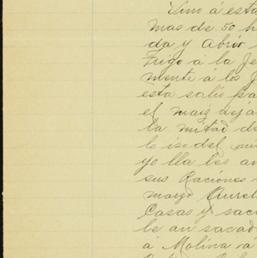 Vino á esta
mas de 50 h
da y Abrio
Trigo á la Je
mente á los J
esta salio pa
el maiz deja
la mitad d
le ise del mi
yo lla les an
sus Raciones
margo Aurel
Casas y sac
le an sacad
á Molina vá